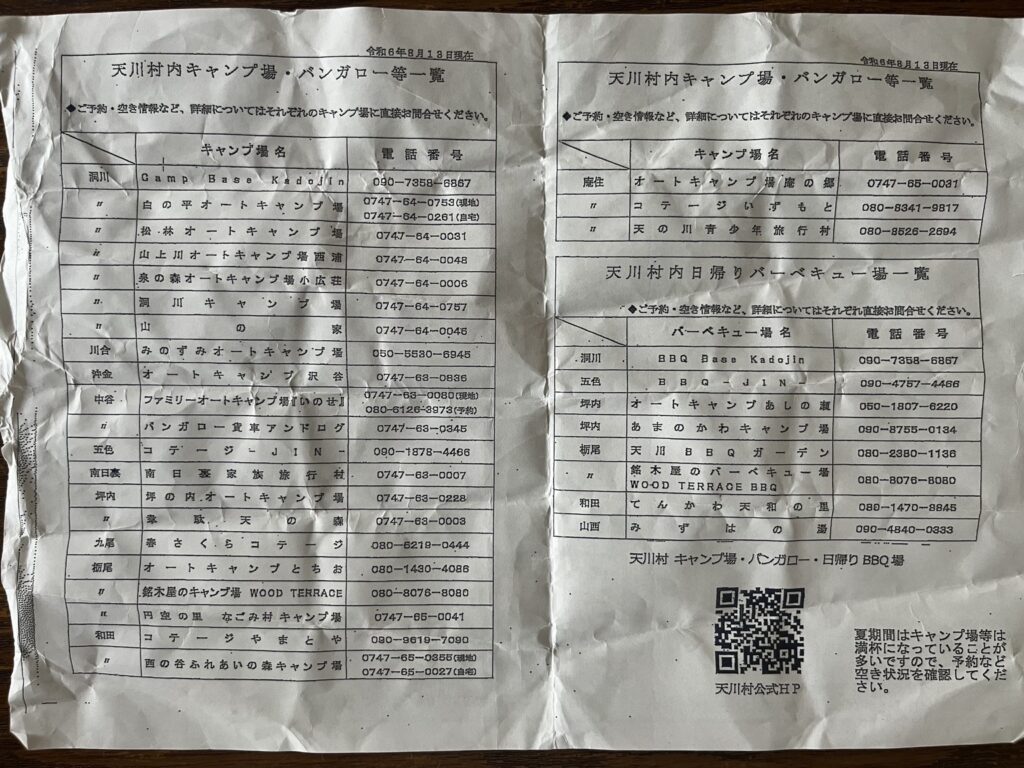 令和6年8月13日現在
天川村内キャンプ場・バンガロー等一覧
◆ご予約・空き情報など、詳細についてはそれぞれのキャンプ場に直接お問合せください。
キャンプ場名 電話番号
洞川 Camp Base Kadojin 090-7358-6867
〃 白の平オートキャンプ場 0747-64-0753(現地)
0747-64-0261(自宅)
〃 松林オートキャンプ場 0747-64-0031
〃 山上川オートキャンプ場西浦 0747-64-0048
〃 泉の森オートキャンプ場小広荘 0747-64-0006
〃 洞川キャンプ場 0747-64-0757
〃 山の家 0747-64-0045
川合 みのずみオートキャンプ場 050-5530-6945
沖金 オートキャンプ沢谷 0747-63-0836
中谷 ファミリーオートキャンプ場『いのせ』 0747-63-0080(現地)
080-6126-3973(予約)
〃 バンガロー貨車アンドログ 0747-63-0345
五色 コテージ-JIN- 090-1878-4466
南日裏 南日裏家族旅行村 0747-63-0007
坪内 坪の内オートキャンプ場 0747-63-0228
〃 韋駄天の森 0747-63-0003
九尾 春さくらコテージ 080-6219-0444
栃尾 オートキャンプとちお 080-1430-4086
〃 銘木屋のキャンプ場 WOOD TERRACE 080-8076-8080
〃 円空の里 なごみ村キャンプ場 0747-65-0041
和田 コテージやまとや 090-9619-7090
〃 西の谷ふれあいの森キャンプ場 0747-65-0355(現地)
0747-65-0027(自宅)
令和6年8月13日現在
天川村内キャンプ場・バンガロー等一覧
◆ご予約・空き情報など、詳細についてはそれぞれのキャンプ場に直接お問合せください。
キャンプ場名 電話番号
庵住 オートキャンプ場庵の郷 0747-65-0031
〃 コテージいずもと 080-8341-9817
〃 天の川青少年旅行村 080-8526-2694
天川村内日帰りバーベキュー場一覧
◆ご予約・空き情報など、詳細についてはそれぞれ直接お問合せください。
バーベキュー場名 電話番号
洞川 BBQ Base Kadojin 090-7358-6867
五色 BBQ-JIN- 090-4757-4466
坪内 オートキャンプあしの瀬 050-1807-6220
坪内 あまのかわキャンプ場 090-8755-0134
栃尾 天川BBQガーデン 080-2380-1136
〃 銘木屋のバーベキュー場
WOOD TERRACE BBQ 080-8076-8080
和田 てんかわ天和の里 089-1470-8845
山西 みずはの湯 090-4840-0333
天川村 キャンプ場・バンガロー・日帰りBBQ場
天川村公式HP
夏期間はキャンプ場等は
満杯になっていることが
多いですので、予約など
空き状況を確認してくだ
さい。